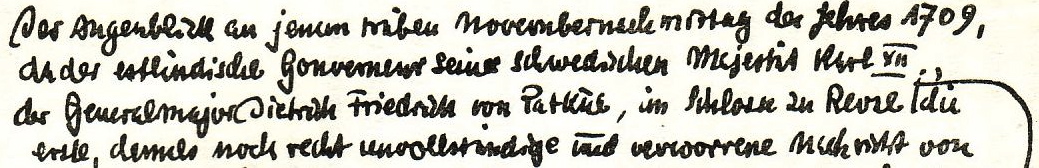 Der Augenblick an jenem trüben Novembernachmittag des Jahres 1709,
da der estländische Gouverneur seiner schwedischen Majestät Karl XII.,
der Generalmajor Dietrich Friedrich von Patkul, im Schlosse zu Reval die
erste, damals noch recht unvollständige und verworrene Nachricht von